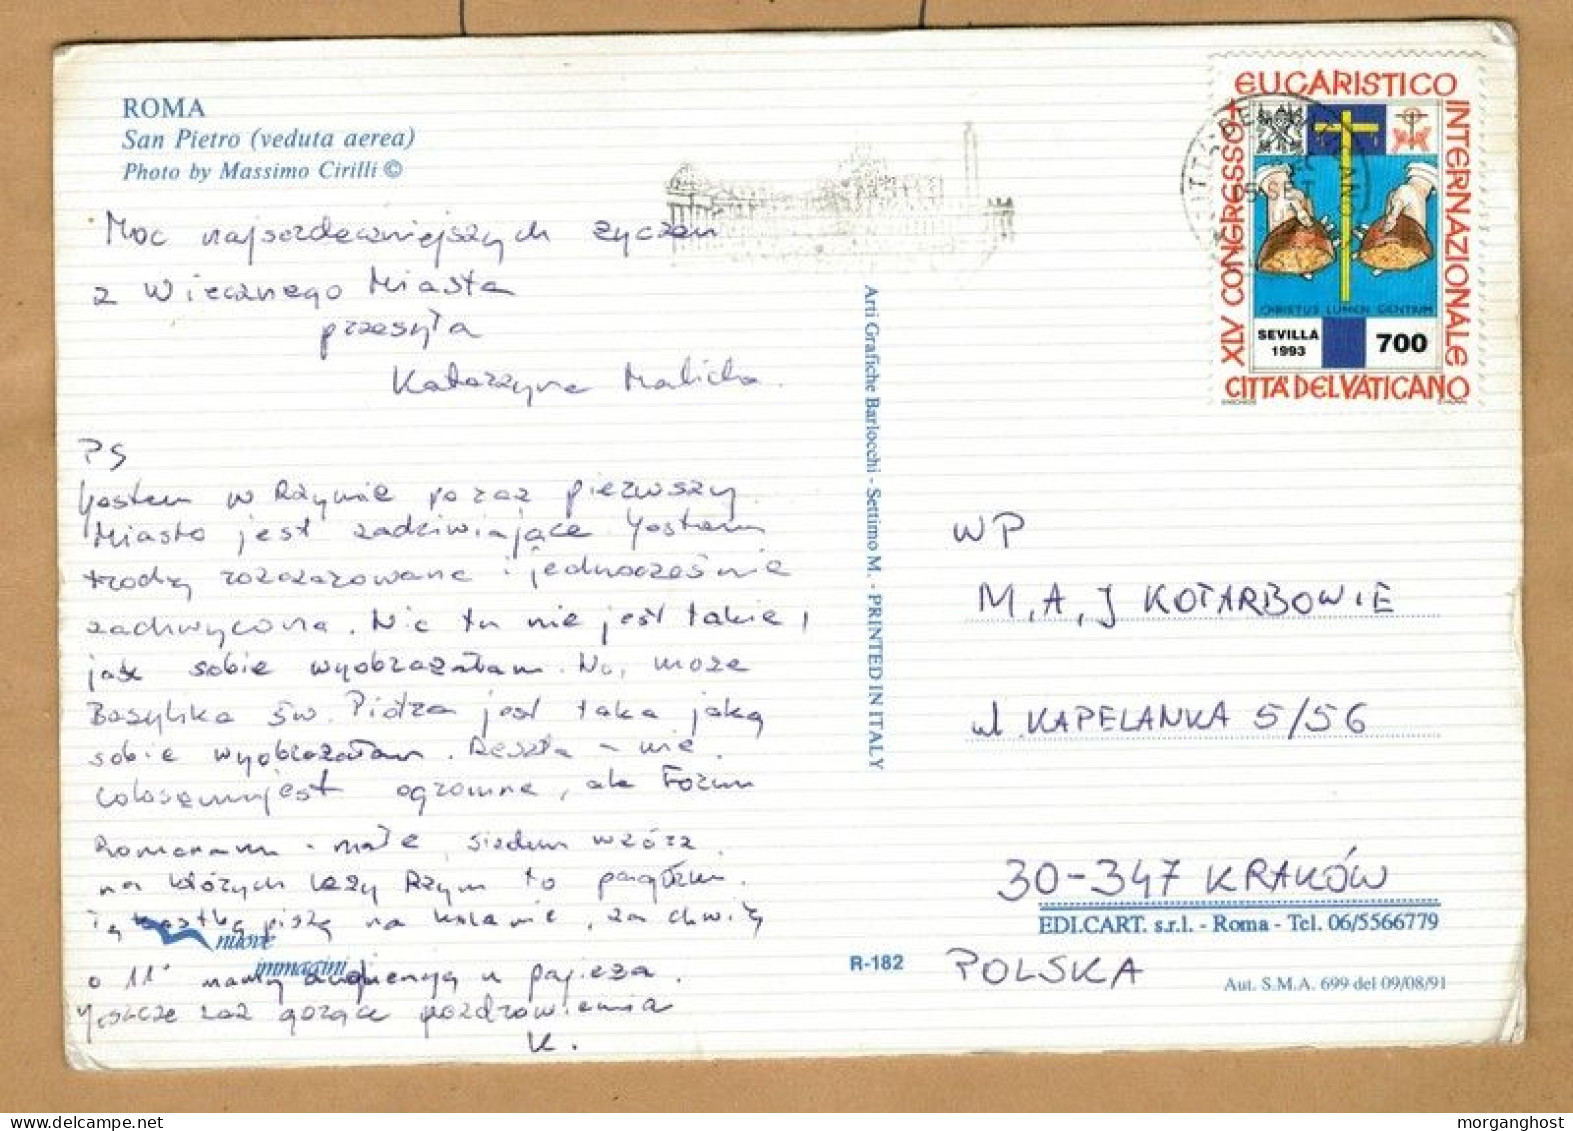 ROMA
San Pietro (veduta aerea)
Photo by Massimo Cirilli ©
Moc najserdeczniejszych życzeń
z Wiecznego Miasta
przesyła
Katarzyna Malicka.
PS
Jestem w Rzymie po raz pierwszy.
Miasto jest zadziwiające. Jestem
trochę rozczarowana i jednocześnie
zachwycona. Nic tu nie jest takie,
jak sobie wyobrażałam. No, może
Bazylika św. Piotra jest taka jaką
sobie wyobrażałam. Reszta - nie.
Coloseum jest ogromne, ale Forum
Romanum - małe, siedem wzgórz
na których leży Rzym to pagórki.
Tą kartkę piszę na kolanie, za chwilę
o 11 mamy audiencję u papieża.
Jeszcze raz gorące pozdrowienia
K.
nuove
immagini
Arti Grafiche Barlocchi - Settimo M. - PRINTED IN ITALY
R-182
XLV CONGRESSO EUCARISTICO INTERNAZIONALE
CHRISTUS LUMEN GENTIUM
SEVILLA
1993
700
CITTÀ DEL VATICANO
WP
M, A, J KOTARBOWIE
ul. KAPELANKA 5/56
30-347 KRAKÓW
EDI.CART. s.r.l. - Roma - Tel. 06/5566779
POLSKA
Aut. S.M.A. 699 del 09/08/91
morganghost